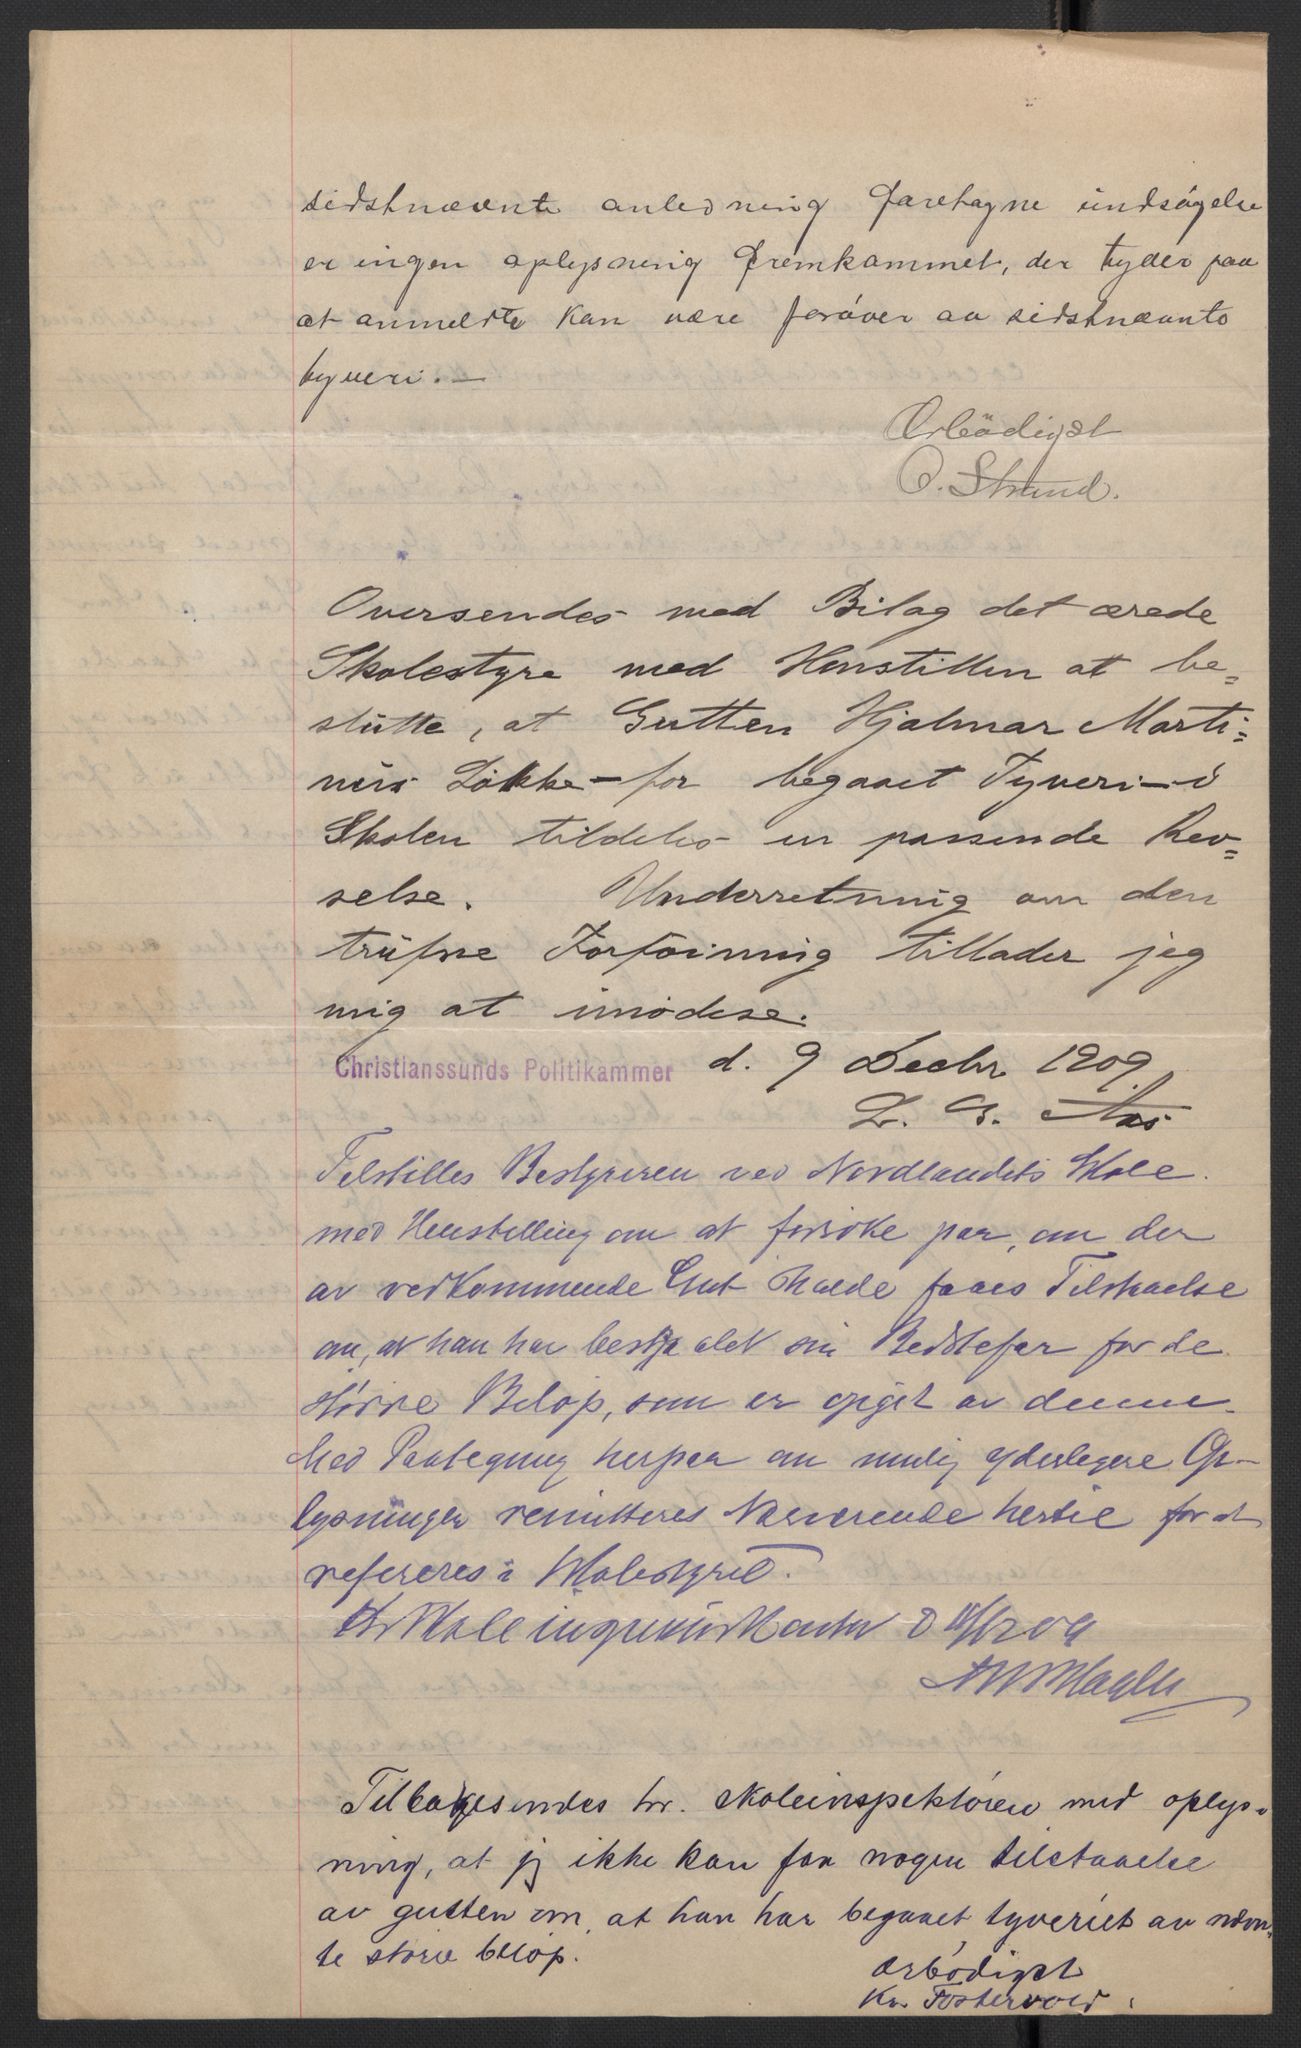 sidstnævnte anledning foretagne undsøgelse
er ingen oplysning fremkommet, der tyder paa
at anmeldte kan være forøver av sidstnævnte
tyveri. —
Ærbödigst
O. Strand.
Oversendes med Bilag det ærede
Skolestyre med Henstillen at be=
slutte, at Gutten Hjalmar Marti=
nus Løkke – for begaaet Tyveri – i
Skolen tildeles en passende Rev=
selse. Underretning om den
trufne Forføining tillader jeg
mig at imødese.
Christianssunds Politikammer d. 9 Decbr. 1909
Tilstilles Bestyreren ved Nordlandets Skole
med Henstilling om at forsøke paa, om der
av vedkommende Gut maatte faaes Tilstaaelse
om, at han har bestjaalet sin Bedstefar for de
større Beløp, som er opgit av denne.
Med Paategning herpaa om mulig yderligere Op-
lysninger remitteres Nærværende hertil for at
refereres i Skolestyret.
Kr.sunds Skoleinspektørkontor d 11/12 09
Tilbakesendes hr. skoleinspektøren med oplys-
ning, at jeg ikke kan faa nogen tilstaaelse
av gutten om, at han har begaaet tyveriet av nævn-
te større beløp.
Ærbødigst
Kr. Fostervold.